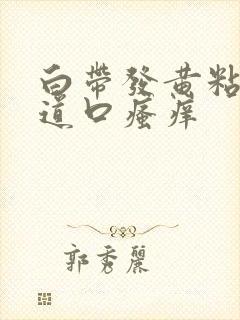 白帶發黃粘
道口瘙痒
郭秀麗